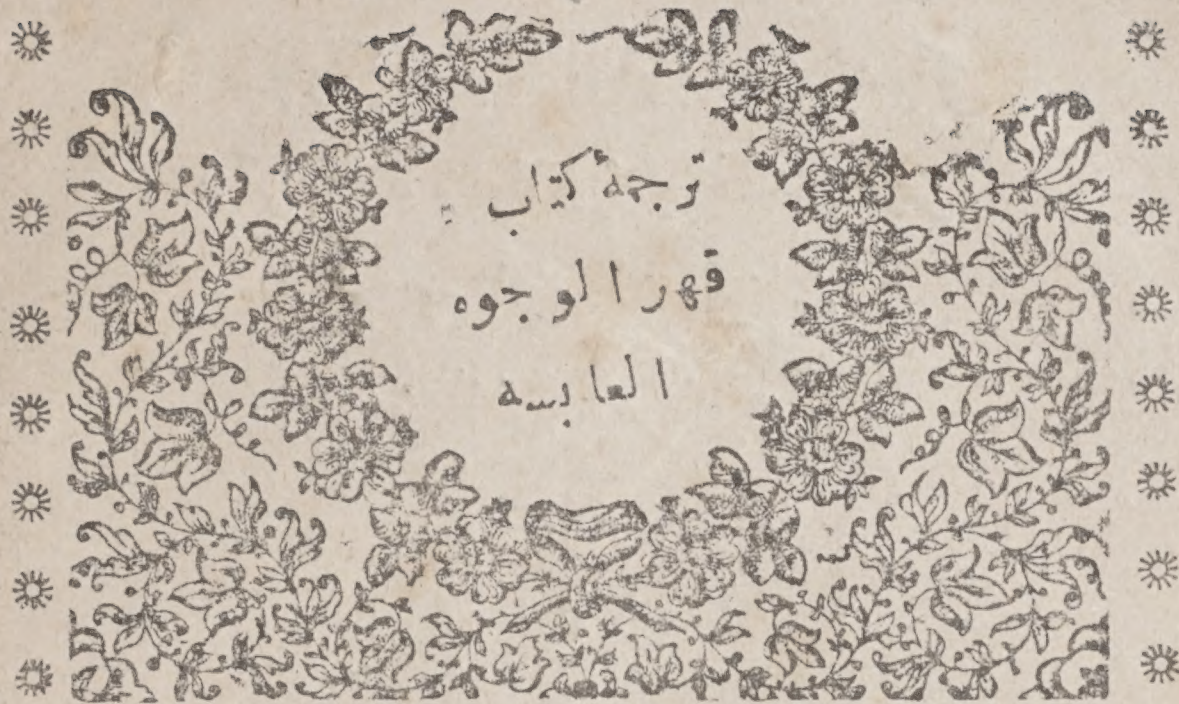 ترجمة كتاب
قهر الوجوه
العابسه